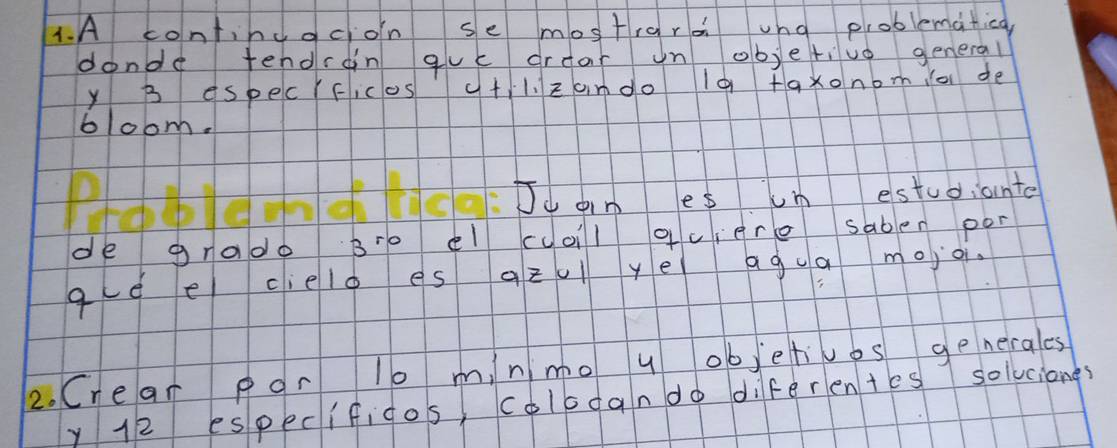 1. A continuación se mostrará una problemática,
donde tendrán que crear un objetivo general
y 3 específicos utilizando la taxonomía de
bloom.
Problemática: Juan es un estudiante
de grado 3ro el cuál quiere saber por
qué el cielo es azul y el agua moja.
2. Crear por lo mínimo 4 objetivos generales
y 12 específicos, colocando diferentes soluciones